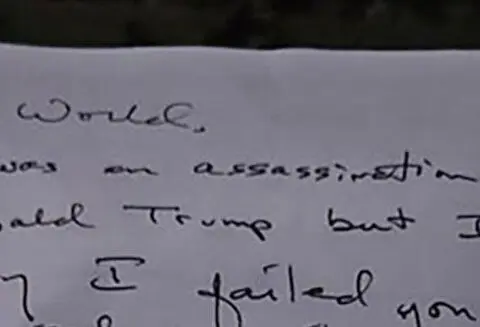 World,
was an assassination
ald Trump but I
y I failed you